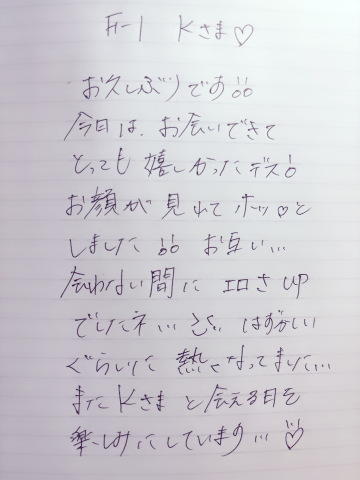 F-1 Kさま♡
お久しぶりです♪♪
今日は、お会いできて
とっても嬉しかったデス♪
お顔が見れてホッ♡と
しました♪♪ お互い…
会わない間に エロさ UP
でしたネ… はずかしい
ぐらいに 熱くなってました…
またKさまと会える日を
楽しみにしています…♡